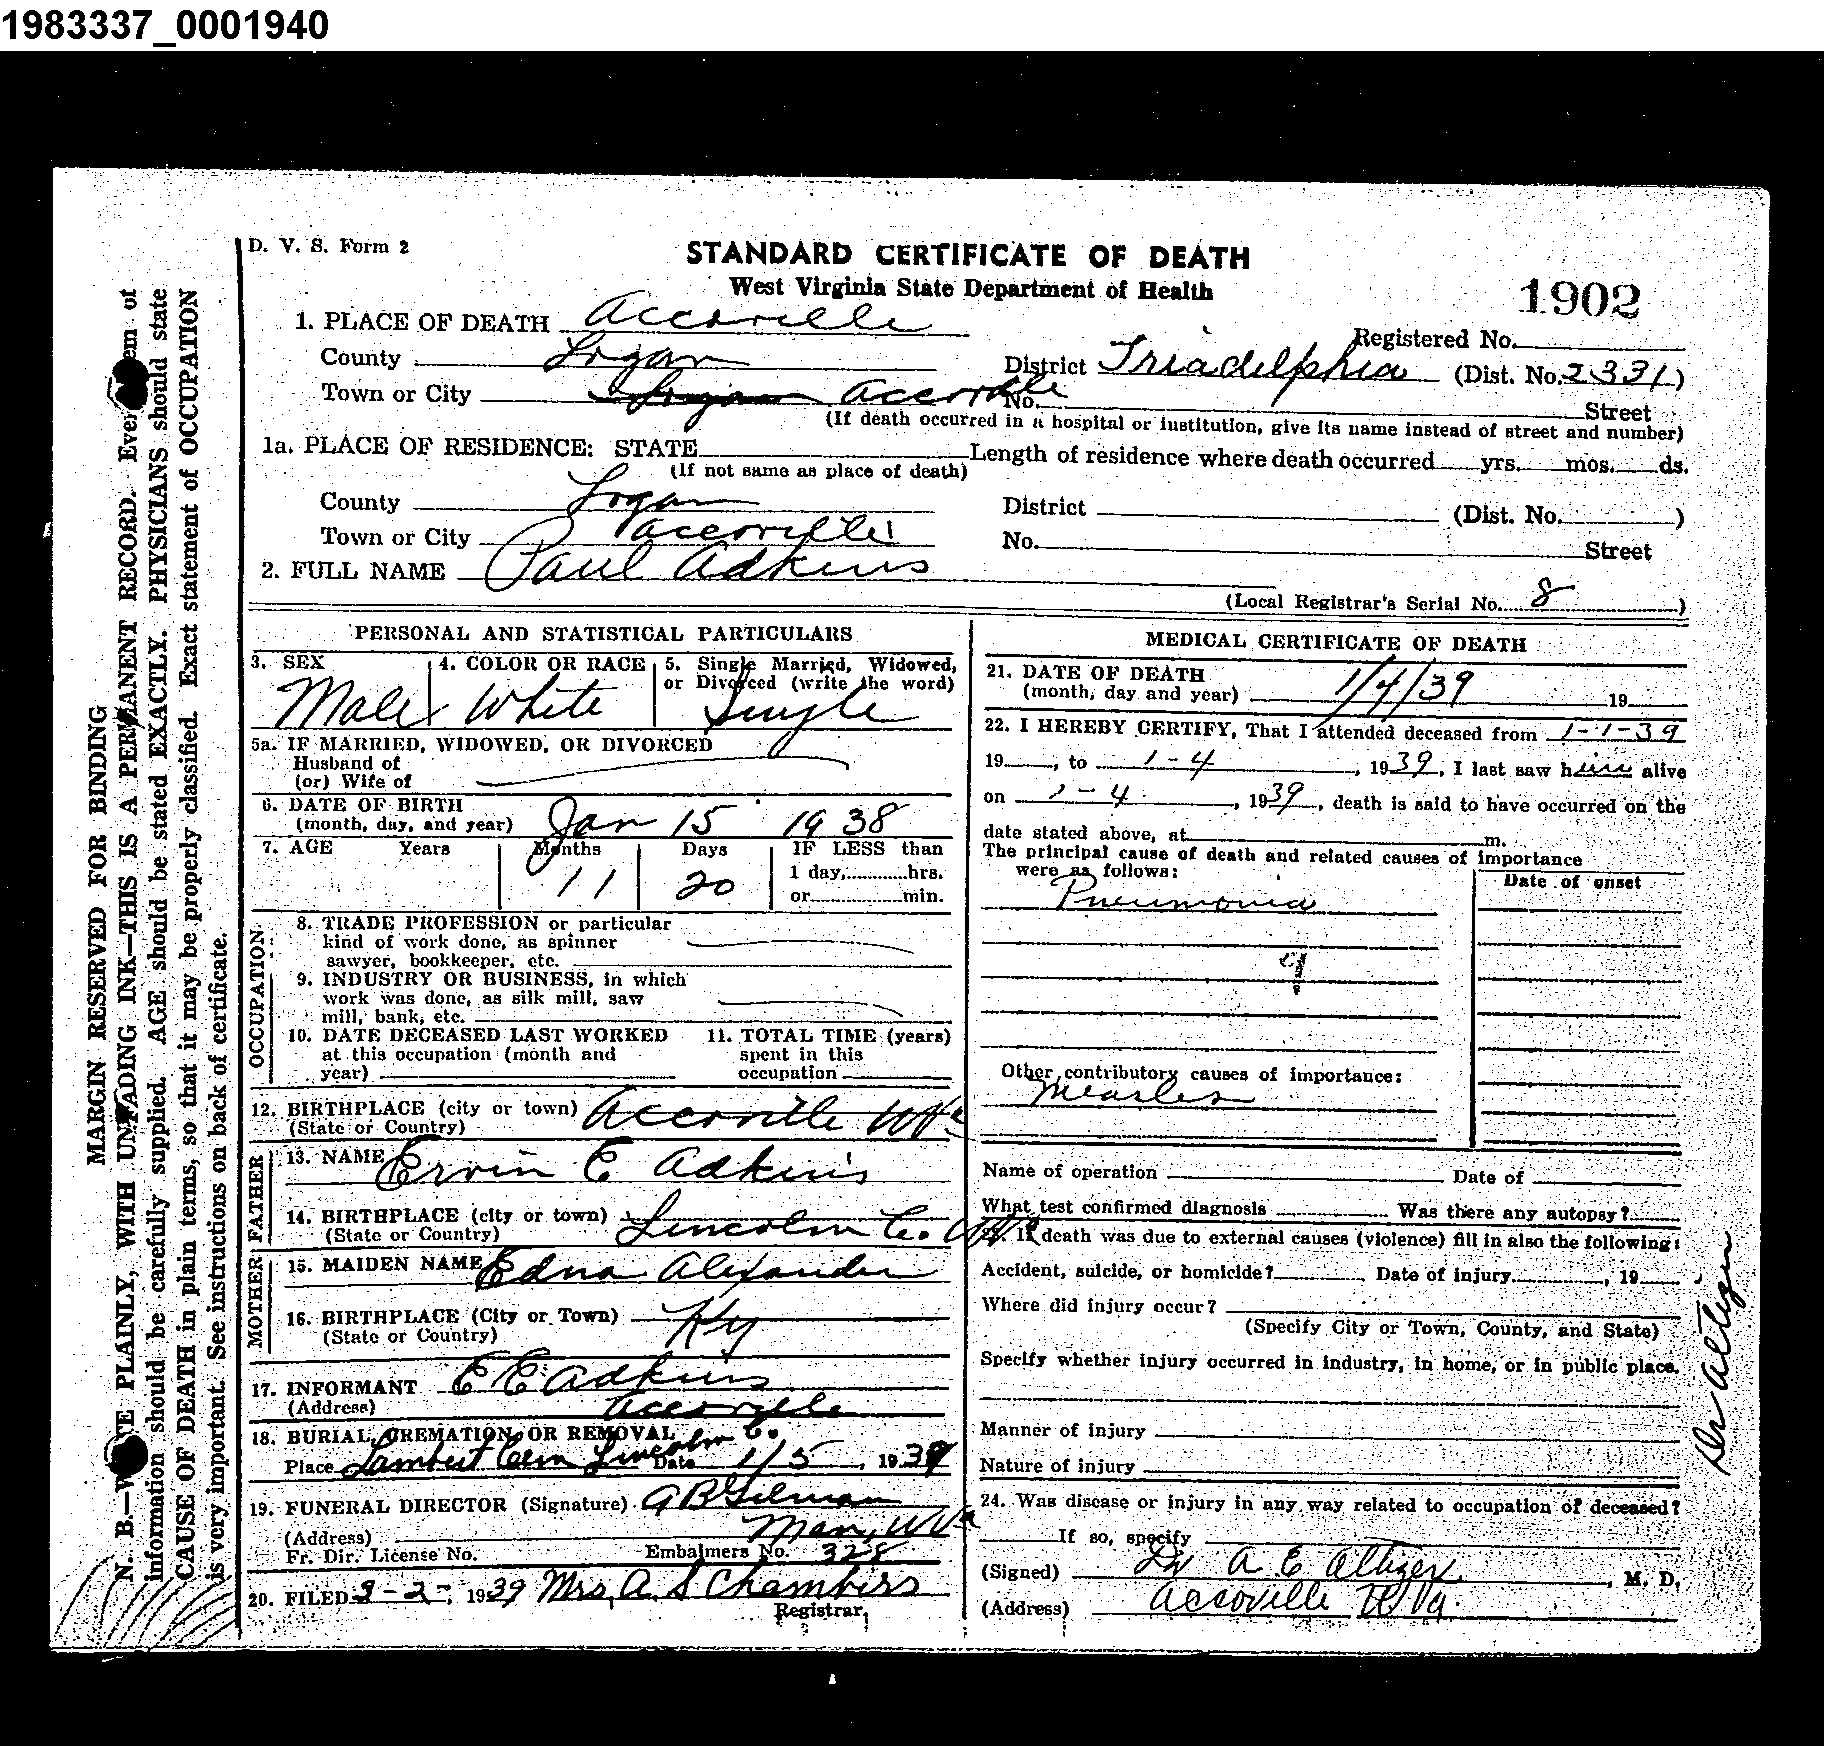 1983337_0001940
D. V. S. Form 2
STANDARD CERTIFICATE OF DEATH
West Virginia State Department of Health
1902
1. PLACE OF DEATH Accoville
Registered No.
County Logan
District Triadelphia (Dist. No. 2331)
Town or City Logan Accoville
No. Street
(If death occurred in a hospital or institution, give its name instead of street and number)
1a. PLACE OF RESIDENCE: STATE
Length of residence where death occurred yrs. mos. ds.
(If not same as place of death)
County Logan
District (Dist. No. )
Town or City Accoville
No. Street
2. FULL NAME Paul Adkins
(Local Registrar's Serial No. 8 )
PERSONAL AND STATISTICAL PARTICULARS
3. SEX
Male
4. COLOR OR RACE
White
5. Single Married, Widowed,
or Divorced (write the word)
Single
5a. IF MARRIED, WIDOWED, OR DIVORCED
Husband of
(or) Wife of
6. DATE OF BIRTH
(month, day, and year) Jan 15 1938
7. AGE Years Months Days IF LESS than
11 20 1 day, hrs.
or min.
OCCUPATION
8. TRADE PROFESSION or particular
kind of work done, as spinner
sawyer, bookkeeper, etc.
9. INDUSTRY OR BUSINESS, in which
work was done, as silk mill, saw
mill, bank, etc.
10. DATE DECEASED LAST WORKED
at this occupation (month and
year)
11. TOTAL TIME (years)
spent in this
occupation
12. BIRTHPLACE (city or town) Accoville W Va
(State or Country)
FATHER
13. NAME Ervin E Adkins
14. BIRTHPLACE (city or town) Lincoln Co. W Va
(State or Country)
MOTHER
15. MAIDEN NAME Edna Alexander
16. BIRTHPLACE (City or Town) Ky
(State or Country)
17. INFORMANT E E Adkins
(Address) Accoville
18. BURIAL, CREMATION, OR REMOVAL
Place Lambert Cem Lincoln Co. Date 1/5, 1939
19. FUNERAL DIRECTOR (Signature) G B Gilman
(Address) Man, W Va
Fr. Dir. License No. Embalmers No. 328
20. FILED 3-2-, 1939 Mrs. A. S Chambers
Registrar,
MEDICAL CERTIFICATE OF DEATH
21. DATE OF DEATH
(month, day and year) 1/4/39 19
22. I HEREBY CERTIFY, That I attended deceased from 1-1-39
19 , to 1-4 , 1939, I last saw him alive
on 1-4 , 1939, death is said to have occurred on the
date stated above, at m.
The principal cause of death and related causes of importance
were as follows:
Date of onset
Pneumonia
Other contributory causes of importance:
Measles
Name of operation Date of
What test confirmed diagnosis Was there any autopsy?
If death was due to external causes (violence) fill in also the following:
Accident, suicide, or homicide? Date of injury , 19
Where did injury occur?
(Specify City or Town, County, and State)
Specify whether injury occurred in industry, in home, or in public place.
Manner of injury
Nature of injury
24. Was disease or injury in any way related to occupation of deceased?
If so, specify
(Signed) Dr A E Altizer , M. D.
(Address) Accoville W Va.
Dr Altizer
MARGIN RESERVED FOR BINDING
N. B.—WRITE PLAINLY, WITH UNFADING INK—THIS IS A PERMANENT RECORD. Every item of
information should be carefully supplied. AGE should be stated EXACTLY. PHYSICIANS should state
CAUSE OF DEATH in plain terms, so that it may be properly classified. Exact statement of OCCUPATION
is very important. See instructions on back of certificate.